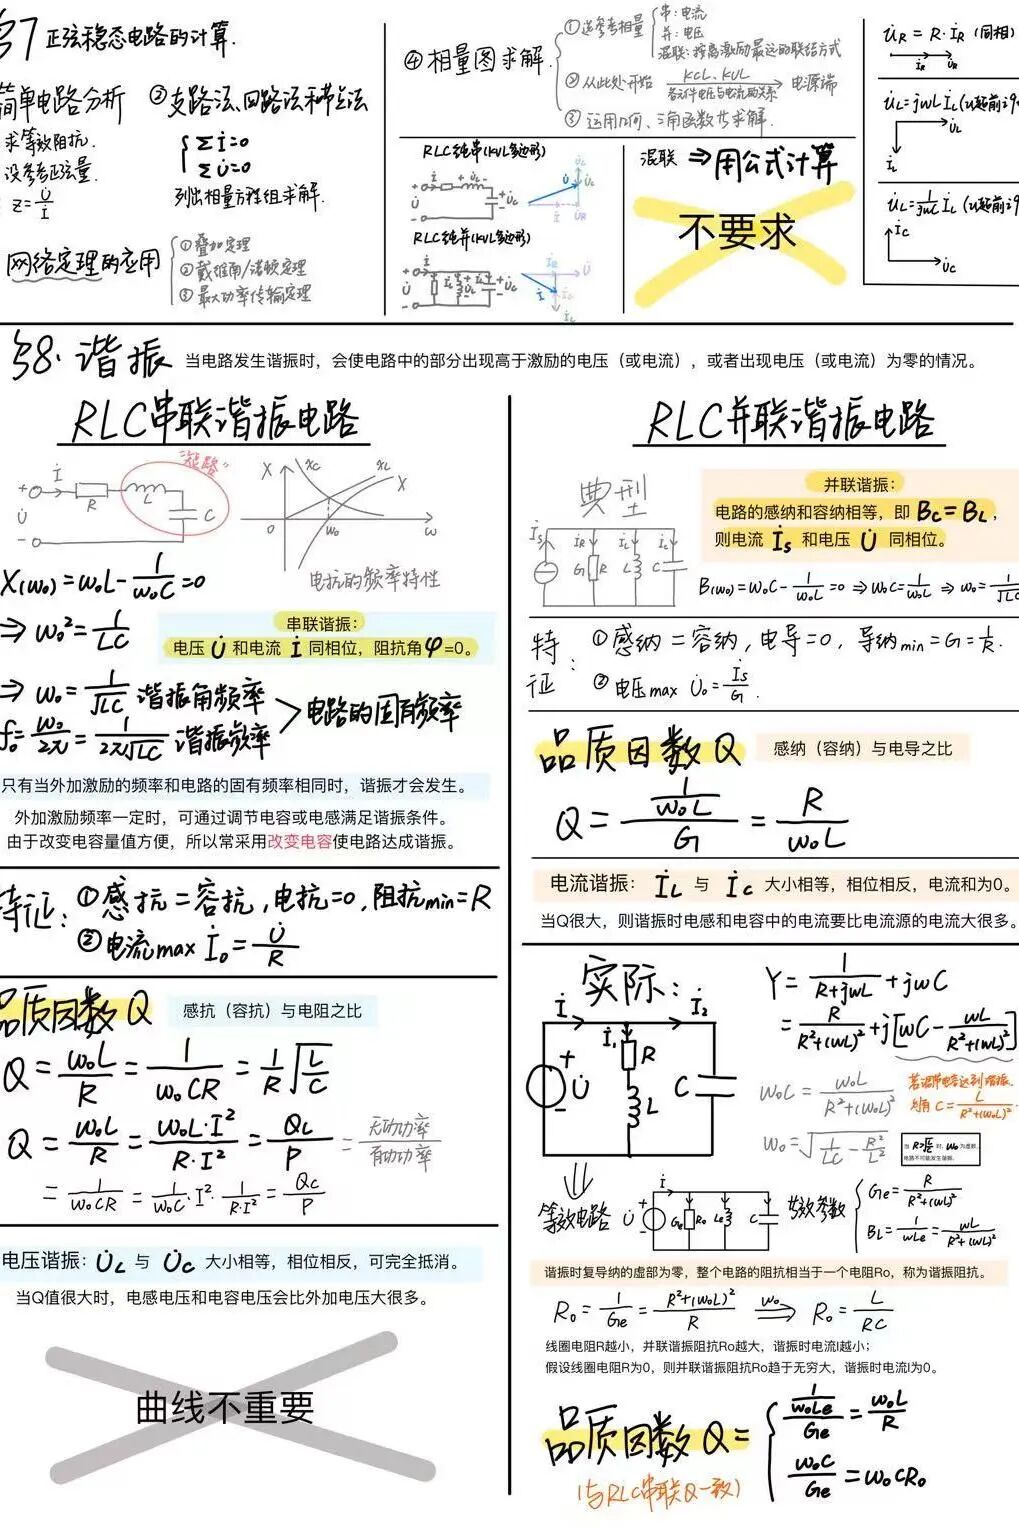 §7 正弦稳态电路的计算.
简单电路分析
求等效阻抗.
设参考正弦量.
Z=U̇/İ
② 支路法、回路法和节点法
Σİ=0
ΣU̇=0
列出相量方程组求解.
网络定理的应用
①叠加定理
②戴维南/诺顿定理
③最大功率传输定理
④相量图求解
①选参考相量
串:电流
并:电压
混联:找离激励最远的联结方式
②从此处开始 KCL、KVL 各元件电压与电流的关系 电源端
③运用几何、三角函数求解.
RLC纯串(KVL多边形)
RLC纯并(KVL多边形)
混联 ⇒用公式计算
不要求
U̇R = R·İR (同相)
İR U̇R
U̇L=jωL İL (U超前i9
U̇L
İL
U̇L=1/jωC İL (U超前i9
İC
U̇C
§8.谐振 当电路发生谐振时,会使电路中的部分出现高于激励的电压(或电流),或者出现电压(或电流)为零的情况。
RLC串联谐振电路
"短路"
+ İ R L C U̇ -
X XC XL X 0 ω0 ω
电抗的频率特性
X(ω0)=ω0L-1/ω0C=0
⇒ ω0²=1/LC
串联谐振:
电压 U̇ 和电流 İ 同相位,阻抗角φ=0。
⇒ ω0=1/√LC 谐振角频率
f0=ω0/2π=1/2π√LC 谐振频率
>电路的固有频率
只有当外加激励的频率和电路的固有频率相同时,谐振才会发生。
外加激励频率一定时,可通过调节电容或电感满足谐振条件。
由于改变电容量值方便,所以常采用改变电容使电路达成谐振。
特征: ①感抗=容抗,电抗=0,阻抗min=R
②电流max İ0=U̇/R
品质因数Q 感抗(容抗)与电阻之比
Q=ω0L/R=1/ω0CR=1/R√L/C
Q=ω0L/R=ω0L·I²/R·I²=QL/P=无功功率/有功功率
=1/ω0CR=1/ω0C·I²·1/R·I²=QC/P
电压谐振:U̇L 与 U̇C 大小相等,相位相反,可完全抵消。
当Q值很大时,电感电压和电容电压会比外加电压大很多。
曲线不重要
RLC并联谐振电路
典型
İS İR İL İC G R L C
并联谐振:
电路的感纳和容纳相等,即 BC=BL,
则电流 İS 和电压 U̇ 同相位。
B(ω0)=ω0C-1/ω0L=0 ⇒ω0C=1/ω0L ⇒ ω0=1/√LC
特征: ①感纳=容纳,电导=0,导纳min=G=1/R.
②电压max U̇0=İS/G.
品质因数Q 感纳(容纳)与电导之比
Q=1/ω0L/G=R/ω0L
电流谐振: İL 与 İC 大小相等,相位相反,电流和为0。
当Q很大,则谐振时电感和电容中的电流要比电流源的电流大很多。
实际:
İ İ1 İ2 + U̇ - R L C
Y=1/R+jωL+jωC
=R/R²+(ωL)²+j[ωC-ωL/R²+(ωL)²]
ω0C=ω0L/R²+(ω0L)²
若调节电容达到谐振.
则有 C=L/R²+(ω0L)²
ω0=√1/LC-R²/L²
当 R>√L/C 时,ω0为虚数,
电路不可能发生谐振。
等效电路
İ + U̇ - Ge R0 Le C
等效参数
Ge=R/R²+(ωL)²
BL=1/ωLe=ωL/R²+(ωL)²
谐振时复导纳的虚部为零,整个电路的阻抗相当于一个电阻Ro,称为谐振阻抗。
R0=1/Ge=R²+(ω0L)²/R ω0⇒ R0=L/RC
线圈电阻R越小,并联谐振阻抗Ro越大,谐振时电流I越小;
假设线圈电阻R为0,则并联谐振阻抗Ro趋于无穷大,谐振时电流I为0。
品质因数Q=
1/ω0Le/Ge=ω0L/R
ω0C/Ge=ω0CR0
(与RLC串联Q一致)